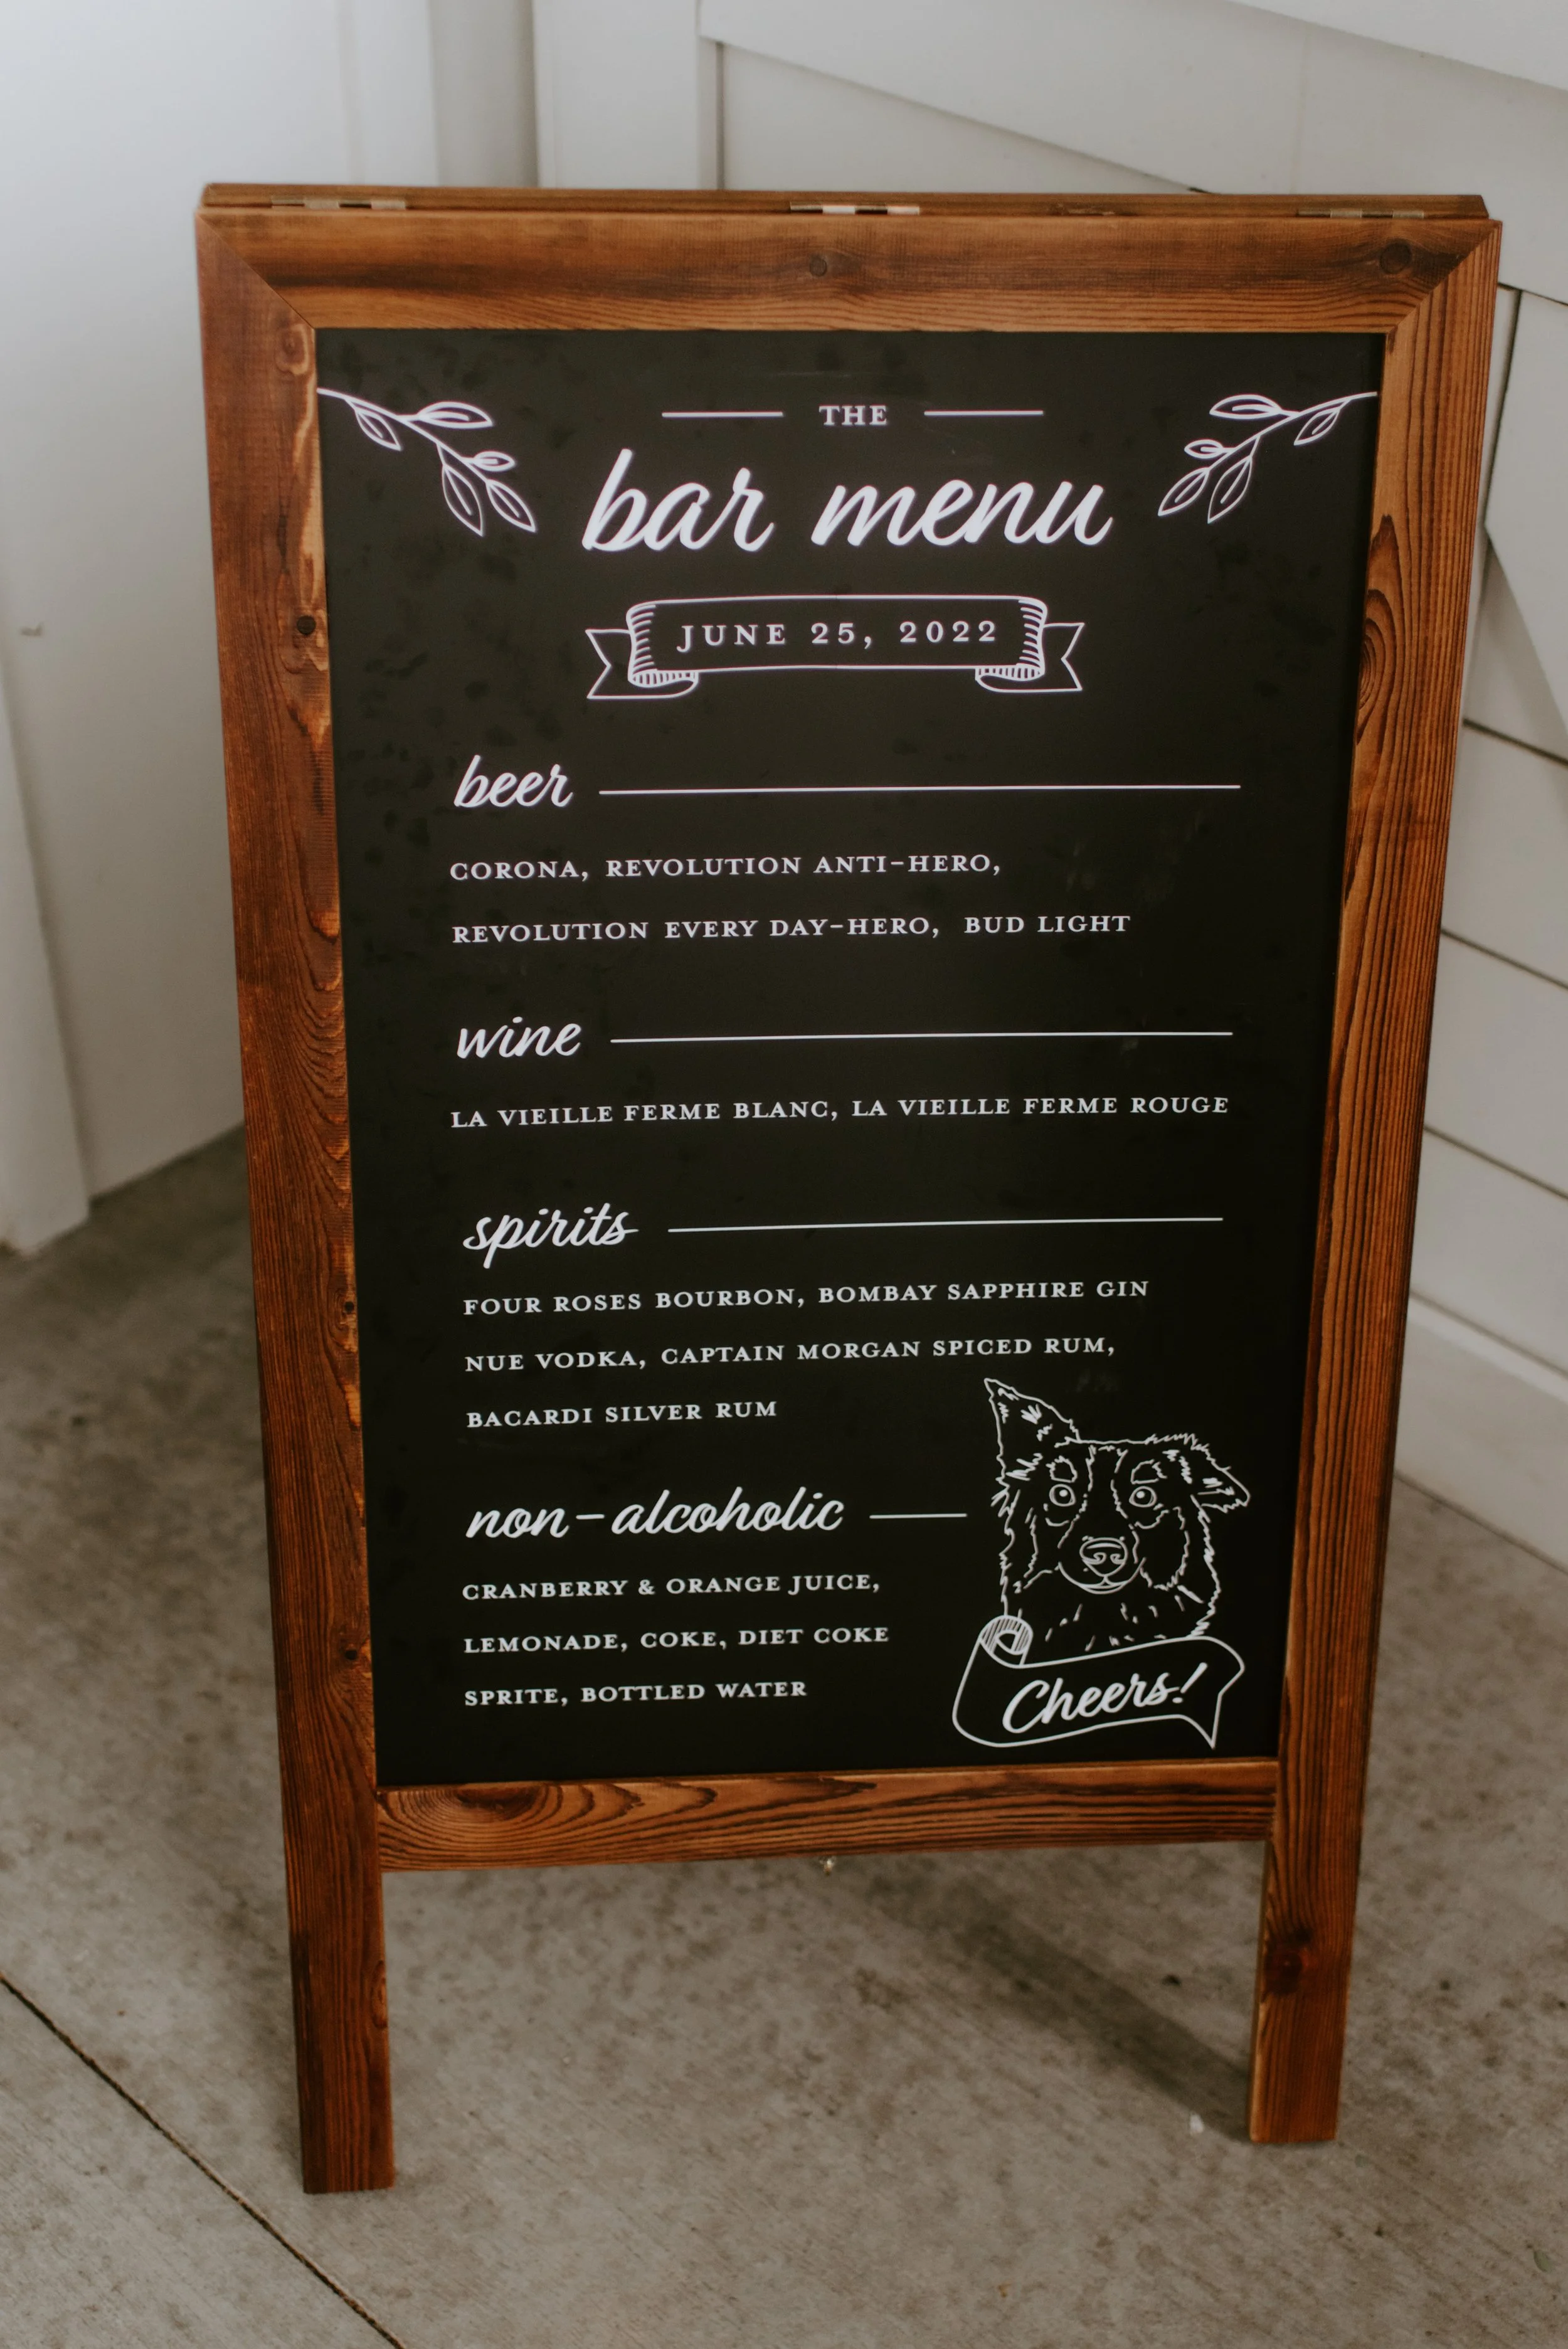 THE
bar menu
JUNE 25, 2022
beer
CORONA, REVOLUTION ANTI-HERO,
REVOLUTION EVERY DAY-HERO, BUD LIGHT
wine
LA VIEILLE FERME BLANC, LA VIEILLE FERME ROUGE
spirits
FOUR ROSES BOURBON, BOMBAY SAPPHIRE GIN
NUE VODKA, CAPTAIN MORGAN SPICED RUM,
BACARDI SILVER RUM
non-alcoholic
CRANBERRY & ORANGE JUICE,
LEMONADE, COKE, DIET COKE
SPRITE, BOTTLED WATER
Cheers!